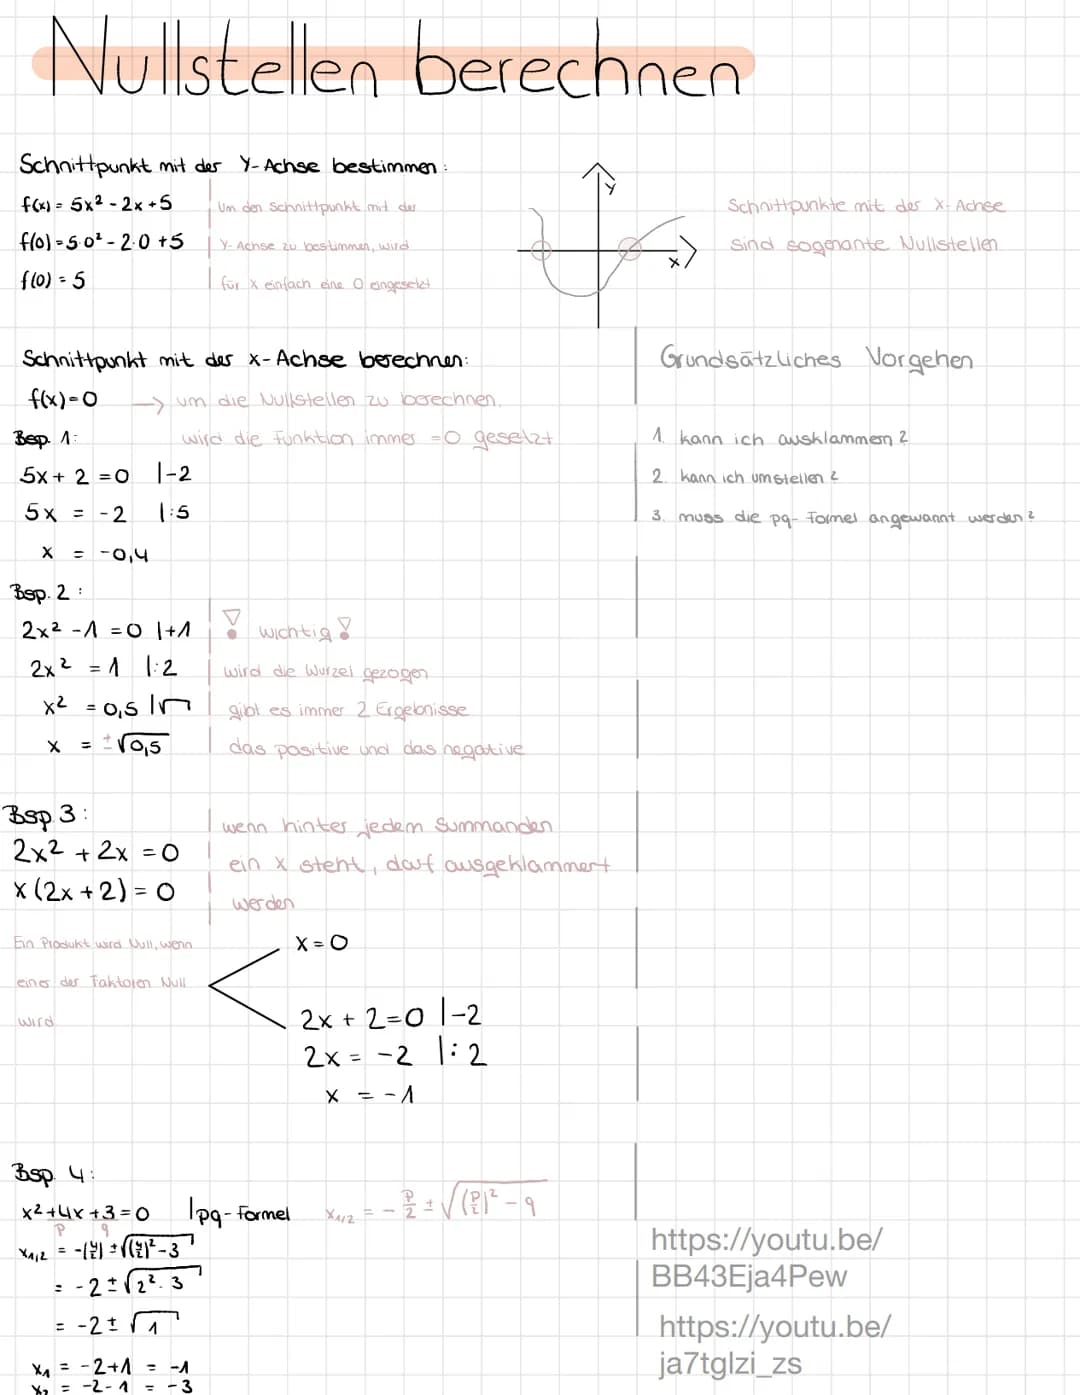 Nullstellen berechnen
Schnittpunkt mit der Y-Achse bestimmen:
f(x) = 5x² - 2x + 5
f(0) = 5·0² - 2·0 + 5
f(0) = 5
Um den Schnittpunkt mit der
Y-Achse zu bestimmen, wird
für X einfach eine 0 eingesetzt
Y
X
Schnittpunkte mit der X-Achse
sind sogenante Nullstellen
Schnittpunkt mit der x-Achse berechnen:
f(x) = 0 → um die Nullstellen zu berechnen,
wird die Funktion immer =0 gesetzt
Bsp. 1:
5x + 2 = 0 |-2
5x = -2 |:5
x = -0,4
Grundsätzliches Vorgehen
1. kann ich ausklammern?
2. kann ich umstellen?
3. muss die pq-Formel angewannt werden?
Bsp. 2:
2x² - 1 = 0 |+1
2x² = 1 |:2
x² = 0,5 |√
x = ±√0,5
! wichtig !
wird die Wurzel gezogen
gibt es immer 2 Ergebnisse
das positive und das negative
Bsp. 3:
2x² + 2x = 0
x(2x + 2) = 0
wenn hinter jedem Summanden
ein X steht, darf ausgeklammert
werden
Ein Produkt wird Null, wenn
einer der Faktoren Null
wird.
x = 0
2x + 2 = 0 |-2
2x = -2 |:2
x = -1
Bsp. 4:
x² + 4x + 3 = 0 |pq-Formel
p q
x₁/₂ = -p/2 ± √((p/2)² - q
x₁/₂ = -(4/2) ± √((4/2)² - 3
= -2 ± √2² · 3
= -2 ± √1
x₁ = -2+1 = -1
x₂ = -2-1 = -3
https://youtu.be/
BB43Eja4Pew
https://youtu.be/
ja7tglzi_zs